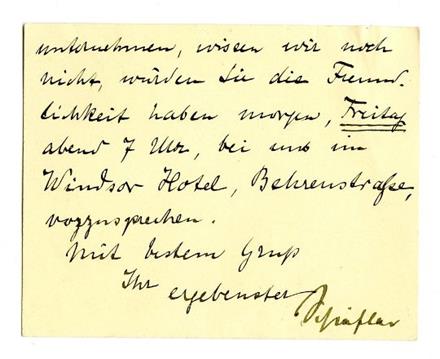 unternehmen, wissen wir noch
nicht, würden Sie die Freund-
lichkeit haben morgen, Freitag
abend 7 Uhr, bei uns im
Windsor Hotel, Behrenstraße,
vorzusprechen.
Mit bestem Gruß
Ihr
ergebenster